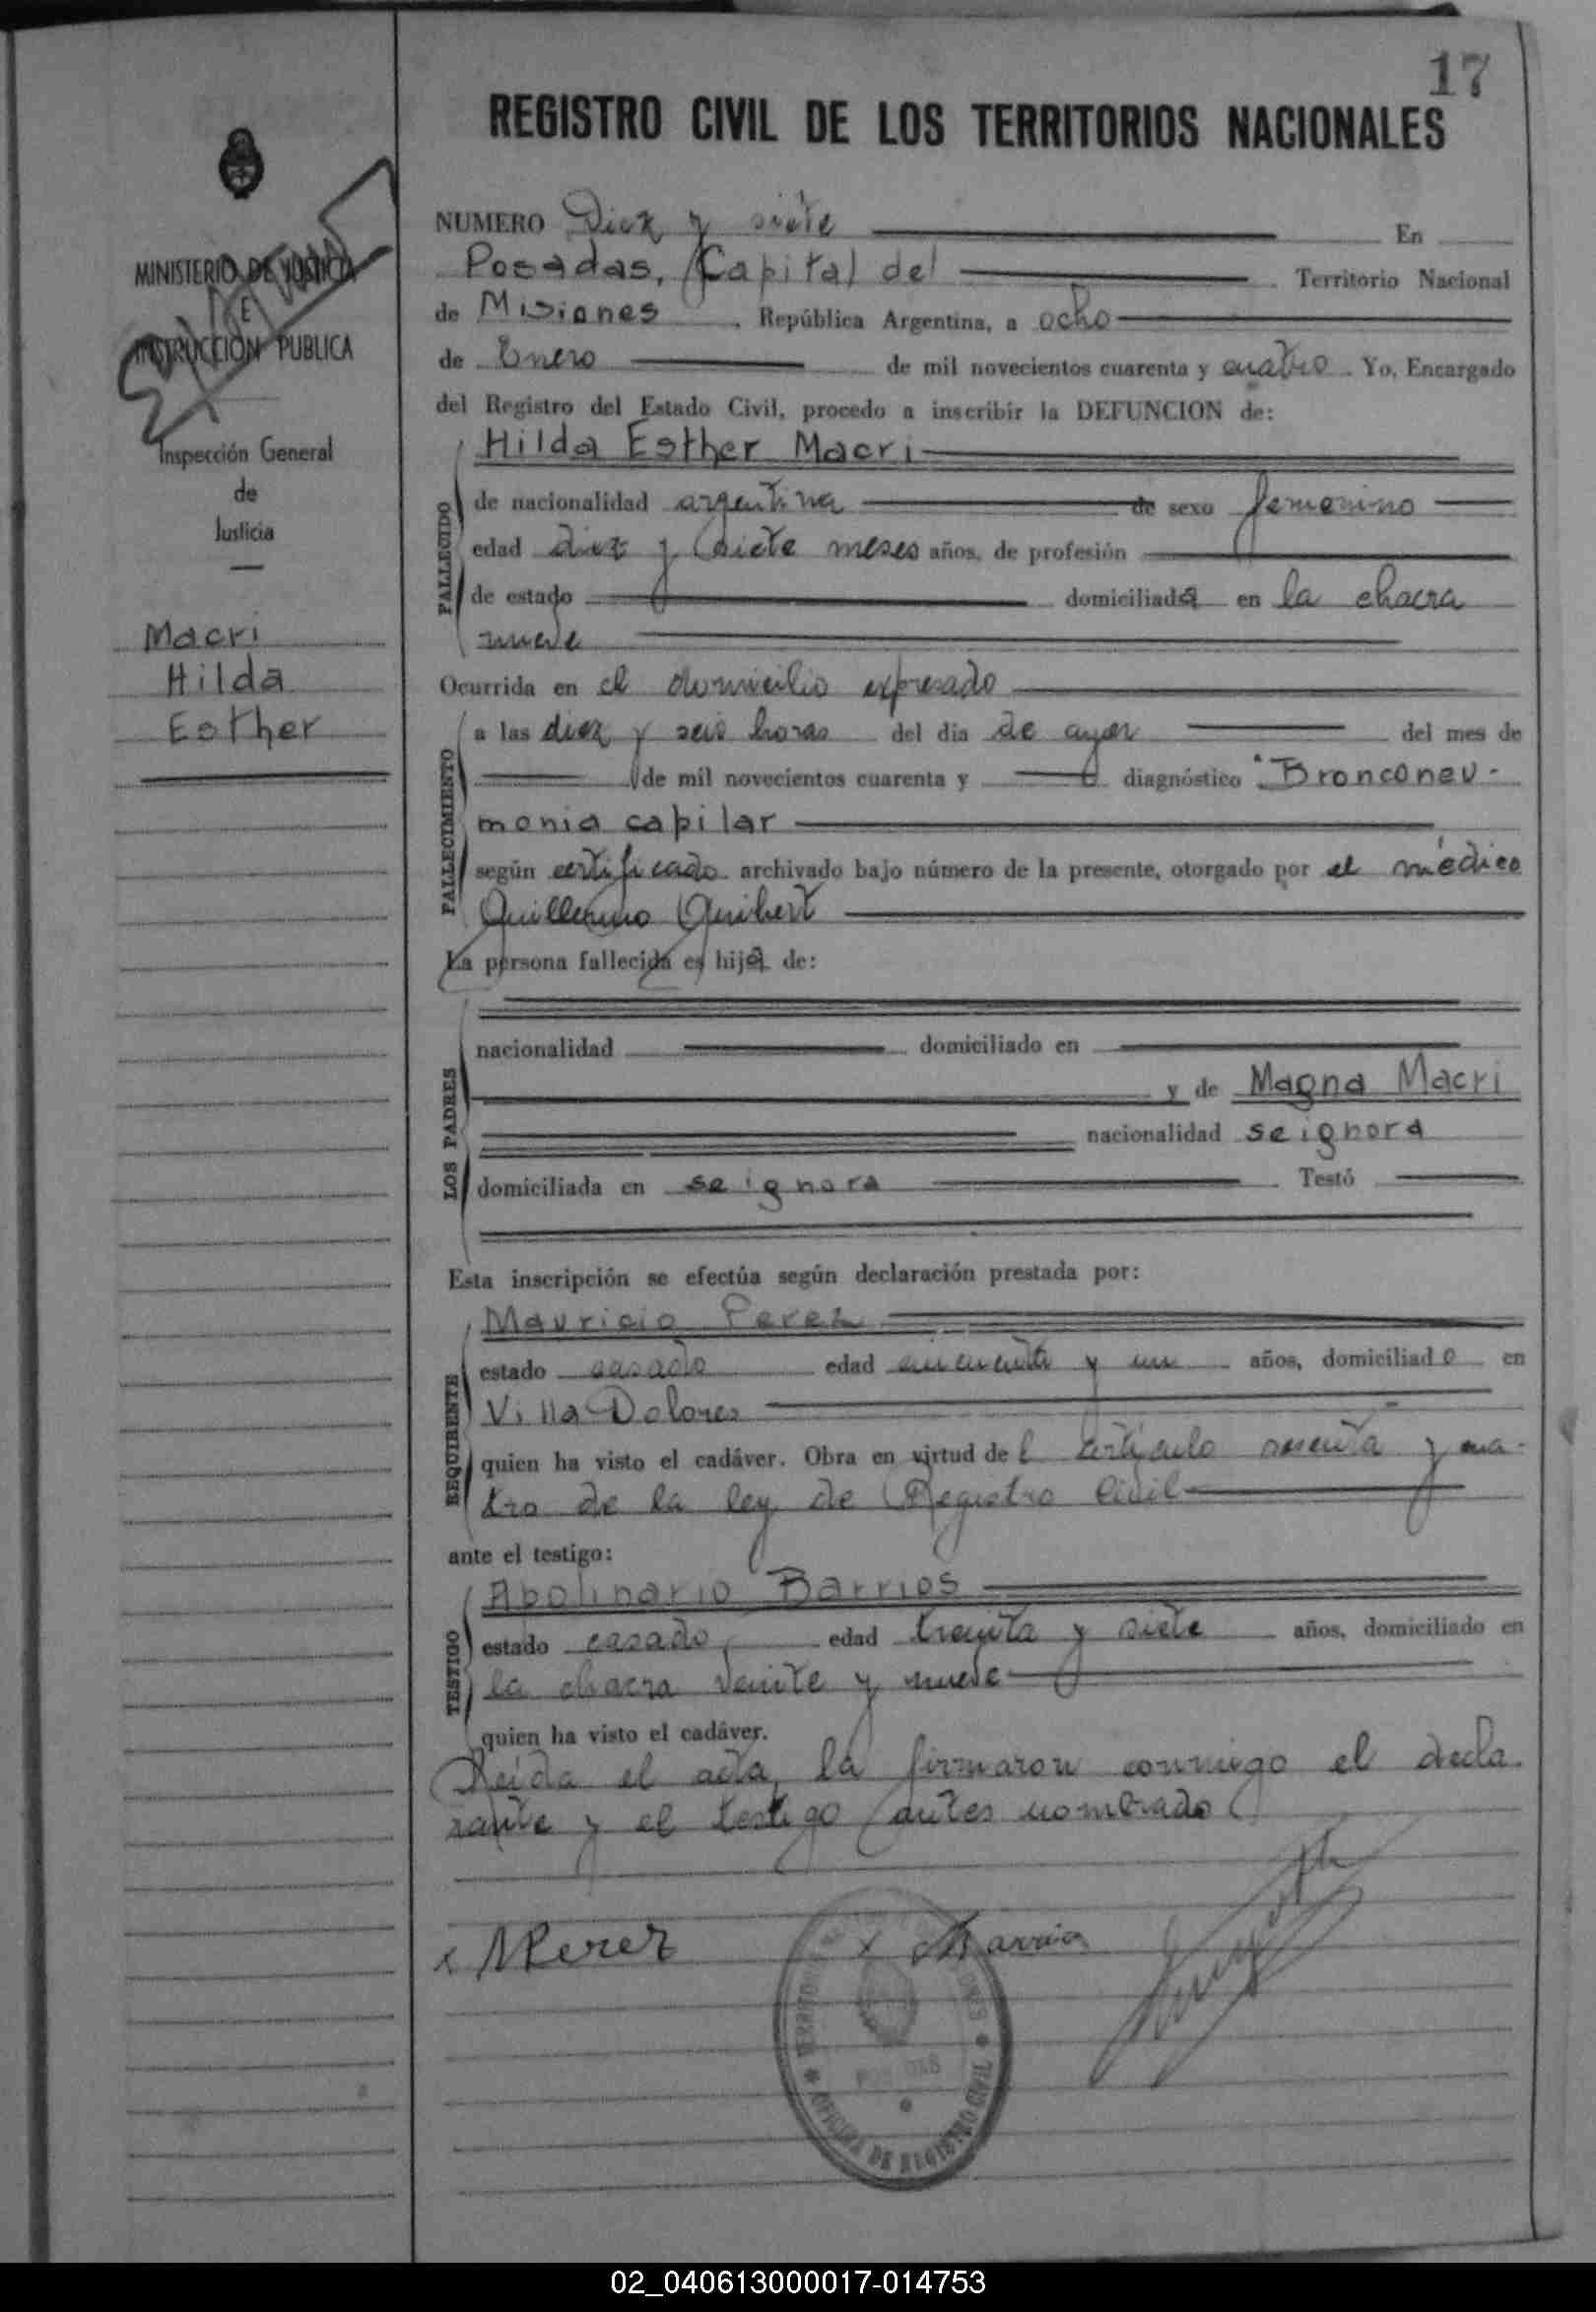 17
REGISTRO CIVIL DE LOS TERRITORIOS NACIONALES
MINISTERIO DE JUSTICIA
E
INSTRUCCION PUBLICA
Inspección General
de
Justicia
Macri
Hilda
Esther
NUMERO Diez y siete En
Posadas, Capital del Territorio Nacional
de Misiones, República Argentina, a ocho
de Enero de mil novecientos cuarenta y cuatro. Yo, Encargado
del Registro del Estado Civil, procedo a inscribir la DEFUNCION de:
Hilda Esther Macri
FALLECIDO
de nacionalidad argentina de sexo femenino
edad diez y siete meses años, de profesión
de estado domiciliada en la chacra
nueve
Ocurrida en el domicilio expresado
FALLECIMIENTO
a las diez y seis horas del dia de ayer del mes de
de mil novecientos cuarenta y diagnóstico "Bronconeu-
monia capilar
según certificado archivado bajo número de la presente, otorgado por el médico
Guillermo
La persona fallecida es hija de:
LOS PADRES
nacionalidad domiciliado en
y de Magna Macri
nacionalidad se ignora
domiciliada en se ignora Testó
Esta inscripción se efectúa según declaración prestada por:
Mauricio Perez
REQUIRENTE
estado casado edad cincuenta y un años, domiciliado en
Villa Dolores
quien ha visto el cadáver. Obra en virtud del artículo sesenta y cua-
tro de la ley de Registro Civil
ante el testigo:
Apolinario Barrios
TESTIGO
estado casado, edad treinta y siete años, domiciliado en
la chacra veinte y nueve
quien ha visto el cadáver.
Leída el acta, la firmaron conmigo el decla-
rante y el testigo antes nombrado
x MPerez x ABarrios
OFICINA DE REGISTRO CIVIL
02_040613000017-014753